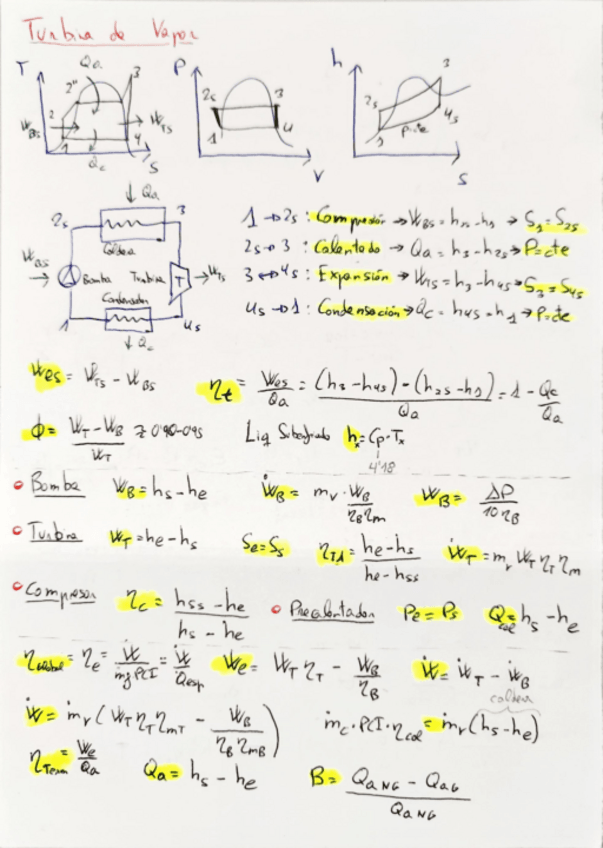 Turbina de Vapor
T Qa 3 P h 3
2" 2s 3 2s 4s
2 WBS WTS 1 4 1 P=cte
1 4 Qc S V S
Qa
2s 3
Caldera
WBS Bomba Turbina T WTS
Condensador
1 Qc 4s
1 → 2s : Compresión → WBS = h2s - h1 → S1 = S2s
2s → 3 : Calentado → Qa = h3 - h2s → P=cte
3 ↔ 4s : Expansión → WTS = h3 - h4s → S3 = S4s
4s → 1 : Condensación → Qc = h4s - h1 → P=cte
Wes = WTS - WBS ηt = Wes / Qa = (h3 - h4s) - (h2s - h1) / Qa = 1 - Qc / Qa
Φ = WT - WB / WT ≥ 0'90-0'95 Liq Subenfriado hx = Cp·Tx
4'18
Bomba WB = hs - he ẆB = mv · WB / ηB ηm WB = ΔP / 10 ηB
Turbina WT = he - hs Se = Ss ηTI = he - hs / he - hss ẆT = ṁv WT ηT ηm
Compresor ηc = hss - he / hs - he Precalentador Pe = Ps Qcal = hs - he
ηglobal = ηe = Ẇ / ṁf PCI = Ẇ / Q̇esp We = WT ηT - WB / ηB Ẇ = ẆT - ẆB
caldera
Ẇ = ṁv (WT ηT ηmT - WB / ηB ηmB) ṁc · PCI · ηcal = ṁv (hs - he)
ηTerm = We / Qa Qa = hs - he B = QaNG - QaG / QaNG